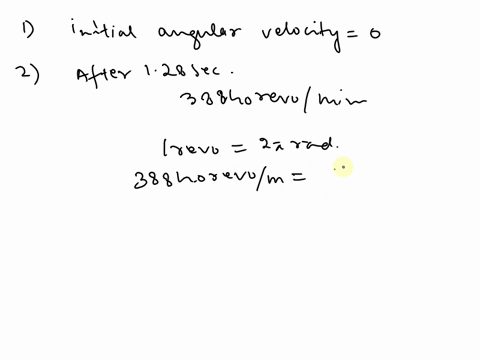 1) initial angular velocity = 0
2) After 1.28 sec.
38840 revo/min
1 revo = 2π rad.
38840 revo/m =